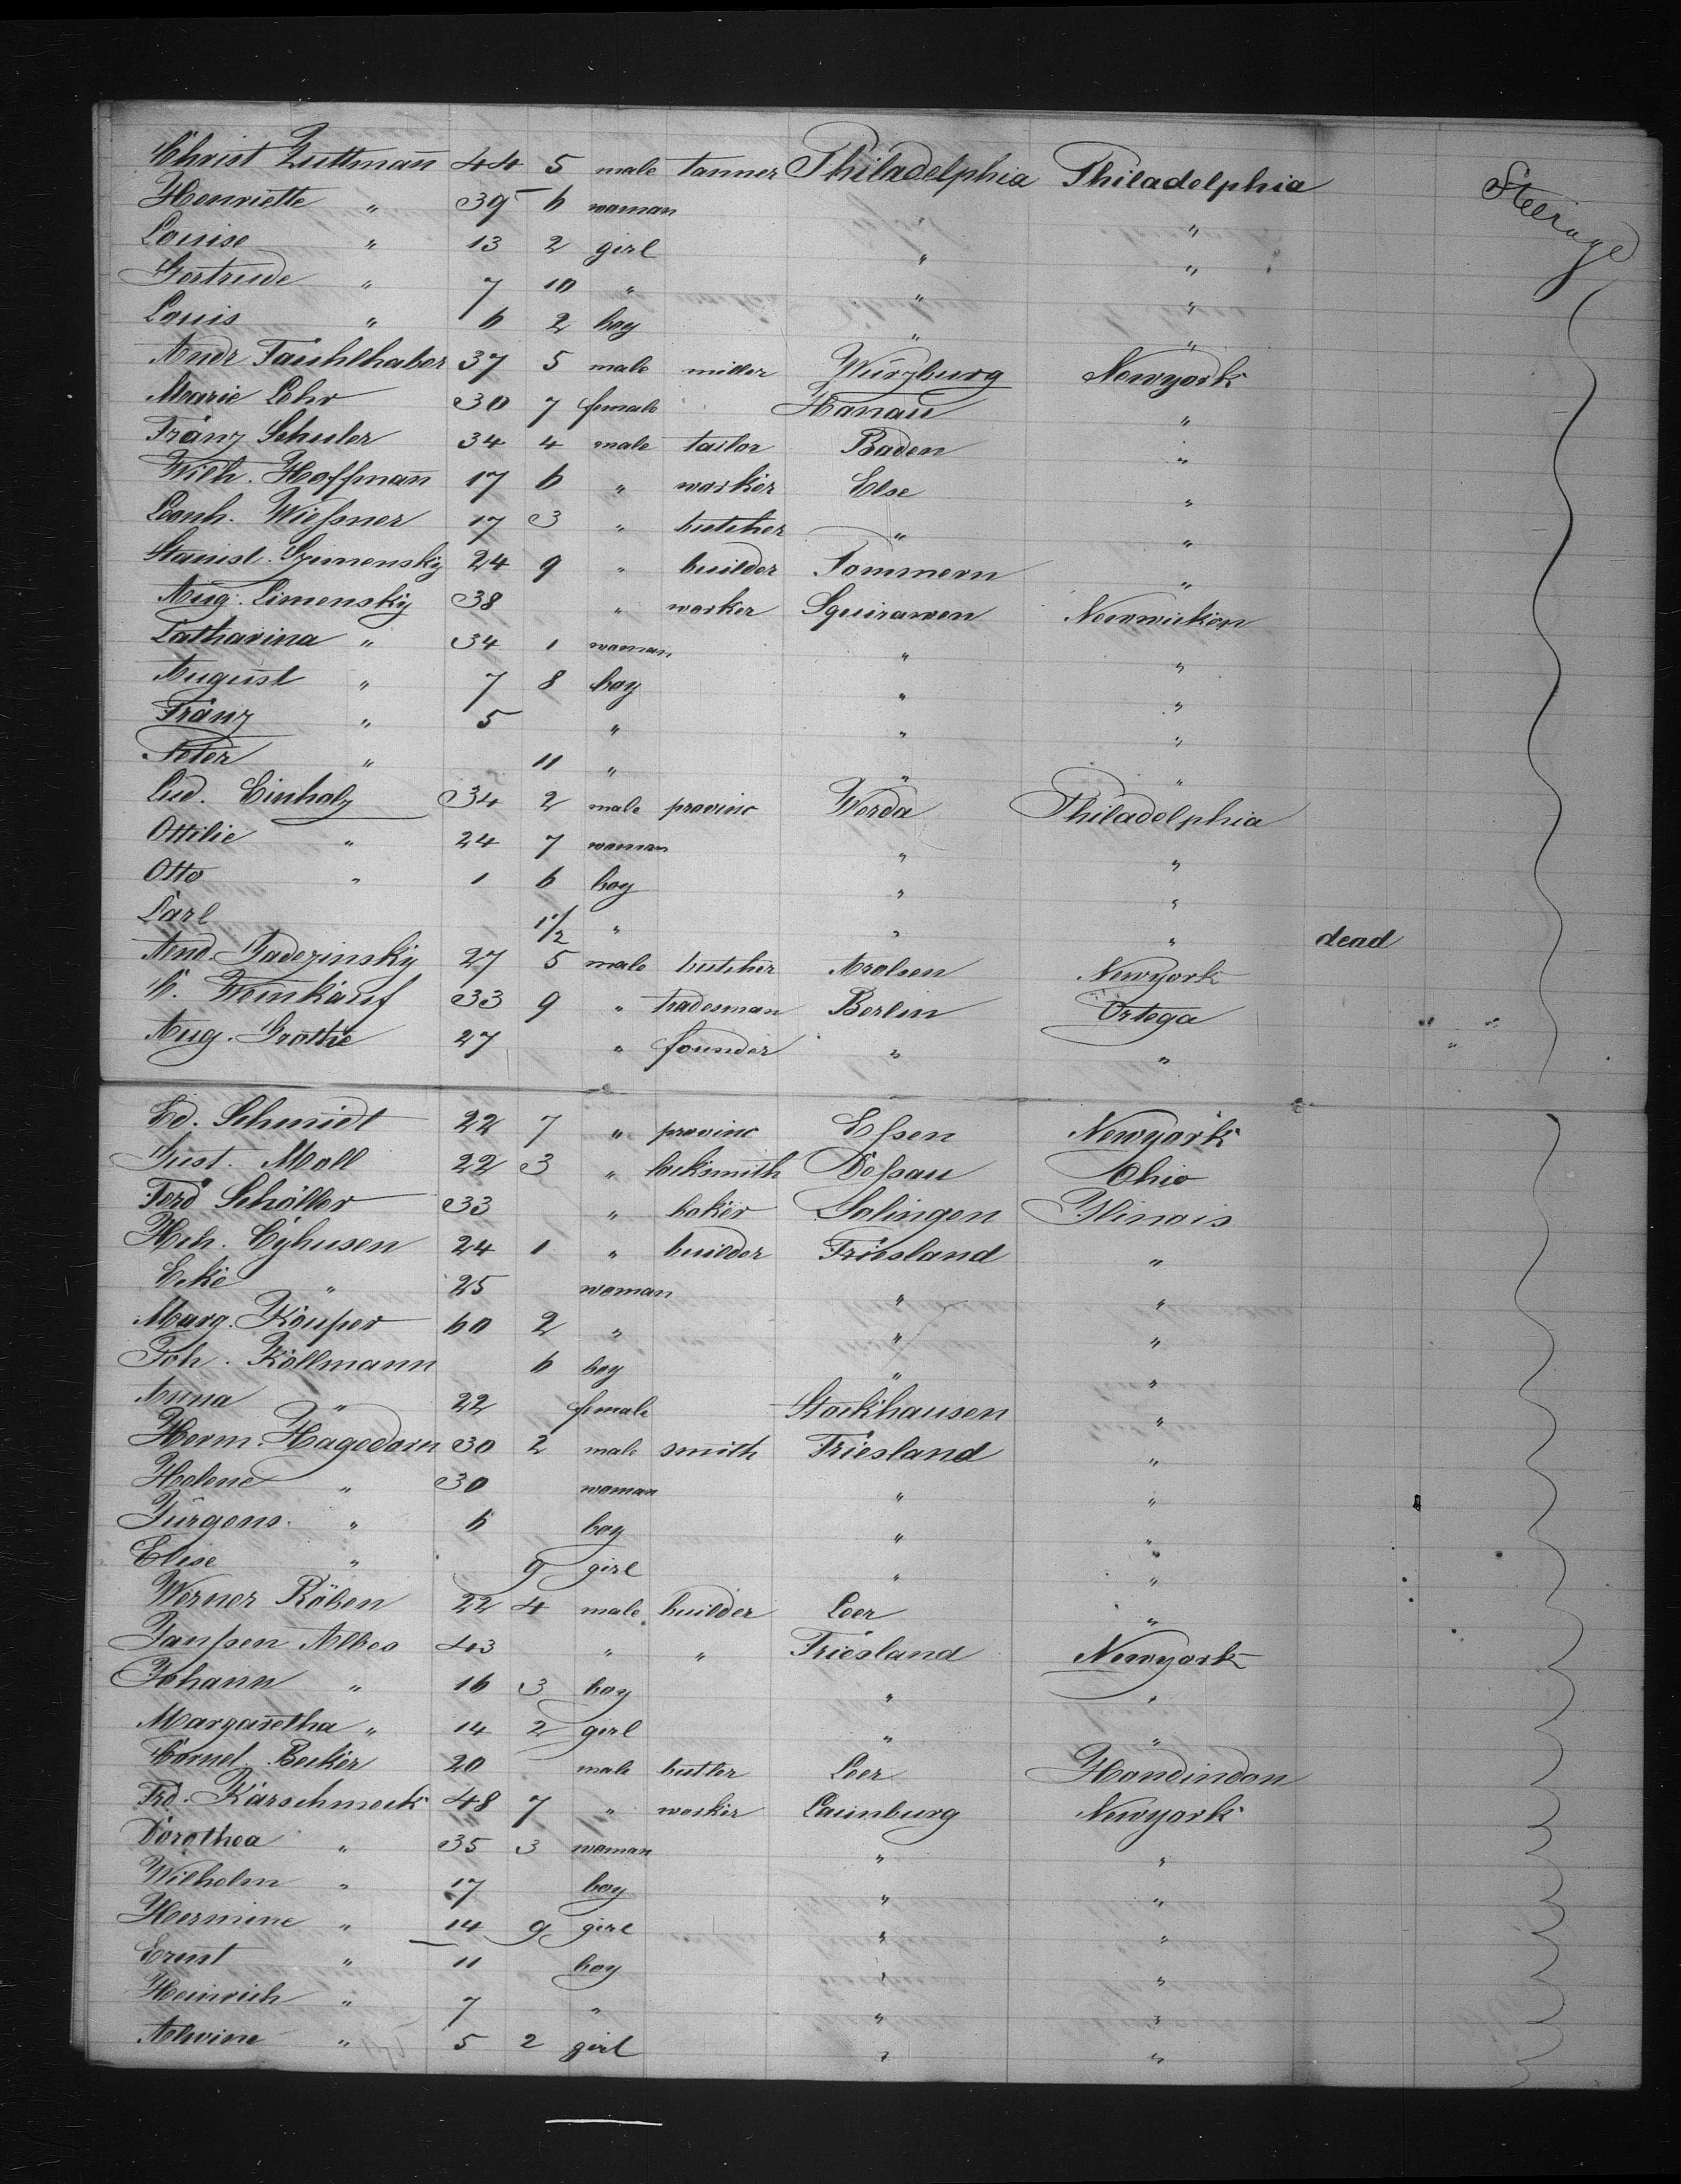 Christ Zuttmann 44 5 male tanner Philadelphia Philadelphia Steerage
Henriette " 39 6 woman " "
Louise " 13 2 girl " "
Gertrude " 7 10 " " "
Louis " 6 2 boy " "
Andr Fauhlhaber 37 5 male miller Würzburg Newyork
Marie Lehr 30 7 female Hanau "
Franz Schuler 34 4 male tailor Baden "
Wilh. Hoffmann 17 6 " worker Else "
Leonh. Wießner 17 3 " butcher " "
Stanisl. Szimensky 24 9 " builder Pommern "
Aug. Cimensky 38 " worker Squirawen
Catharina " 34 1 woman " "
August " 7 8 boy " "
Franz " 5 " " "
Peter " 11 " " "
Lud. Einholz 34 2 male provinc Werda Philadelphia
Ottilie " 24 7 woman " "
Otto " 1 6 boy " "
Carl 1 1/2 " " " dead
And. 27 5 male butcher Arolsen Newyork
C. Weinkauf 33 9 " tradesman Berlin Ortega
Aug. Grothe 27 " founder " "
Ed. Schmidt 22 7 " provinc Eßen Newyork
Gust. Moll 22 3 " locksmith Deßau Ohio
Ferd Schöller 33 " baker Solingen Ilinois
Hch. Eyhusen 24 1 " builder Friesland "
Eeke " 25 woman " "
Marg. 60 2 " " "
Joh. Köllmann 6 boy " "
Anna " 22 female Stockhausen "
Herm. Hagedorn 30 2 male smith Friesland "
Helene " 30 woman " "
Jürgens. " 6 boy " "
Elise " 9 girl " "
Werner Röben 22 4 male builder Leer "
Janßen Albes 43 " " Friesland Newyork
Johann " 16 3 boy " "
Margaretha " 14 2 girl " "
Cornel. Becker 20 male butler Leer Hondindon
Frd. Karschmeck 48 7 " worker Launburg Newyork
Dorothea " 35 3 woman " "
Wilhelm " 17 boy " "
Hermine " 14 9 girl " "
Ernst " 11 boy " "
Heinrich " 7 " " "
Alwine " 5 2 girl " "